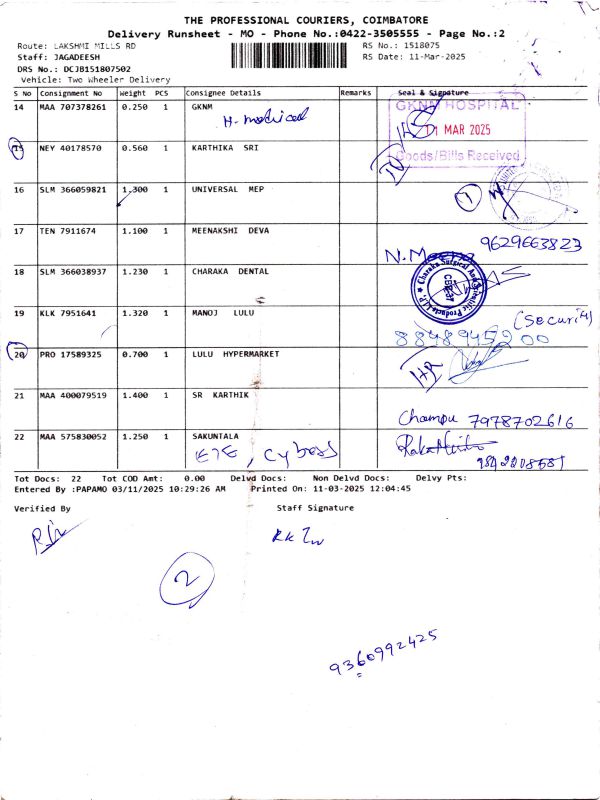 THE PROFESSIONAL COURIERS, COIMBATORE
Delivery Runsheet - MO - Phone No.:0422-3505555 - Page No.:2
Route: LAKSHMI MILLS RD
RS No.: 1518075
Staff: JAGADEESH
RS Date: 11-Mar-2025
DRS No.: DCJB151807502
Vehicle: Two Wheeler Delivery
S No Consignment No Weight PCS Consignee Details Remarks Seal & Signature
14 MAA 707378261 0.250 1 GKNM
H. medical
GKNM HOSPITAL
11 MAR 2025
Goods/Bills Received
15 NEY 40178570 0.560 1 KARTHIKA SRI
16 SLM 366059821 1.300 1 UNIVERSAL MEP
1
17 TEN 7911674 1.100 1 MEENAKSHI DEVA
9629663823
N. Meena
18 SLM 366038937 1.230 1 CHARAKA DENTAL
Charaka Surgical And Scientific Products LLP.
CBE-37
19 KLK 7951641 1.320 1 MANOJ LULU
(Security)
8848945200
20 PRO 17589325 0.700 1 LULU HYPERMARKET
21 MAA 400079519 1.400 1 SR KARTHIK
Champu 7978702616
22 MAA 575830052 1.250 1 SAKUNTALA
E7E, Cyber
Tot Docs: 22 Tot COD Amt: 0.00 Delvd Docs: Non Delvd Docs: Delvy Pts:
Entered By :PAPAMO 03/11/2025 10:29:26 AM Printed On: 11-03-2025 12:04:45
Verified By Staff Signature
2
9360992425